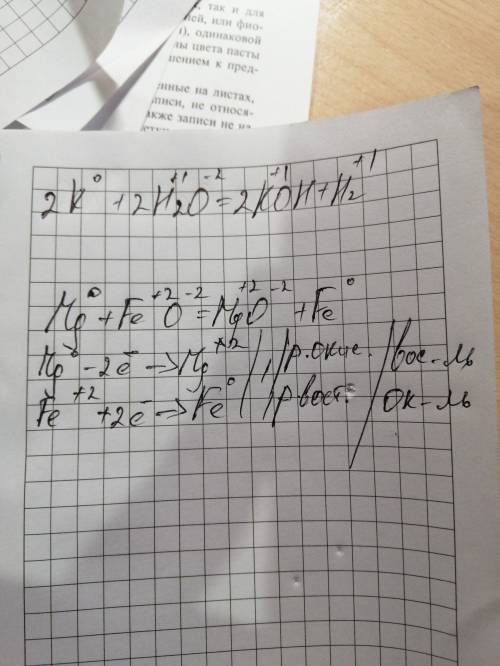 , так и для
ей, или фио-
), одинаковой
ны цвета пасты
шением к пред-
енные на листах,
писи, не относя-
акже записи не на
2K⁰ + 2H₂⁺¹O⁻² = 2K⁺¹OH + H₂⁺¹
Mg⁰ + Fe⁺²O⁻² = Mg⁺²O⁻² + Fe⁰
Mg⁰ - 2ē → Mg⁺² | 1 | р.окис. / вос-ль
Fe⁺² + 2ē → Fe⁰ | 1 | р.вост. / ок-ль